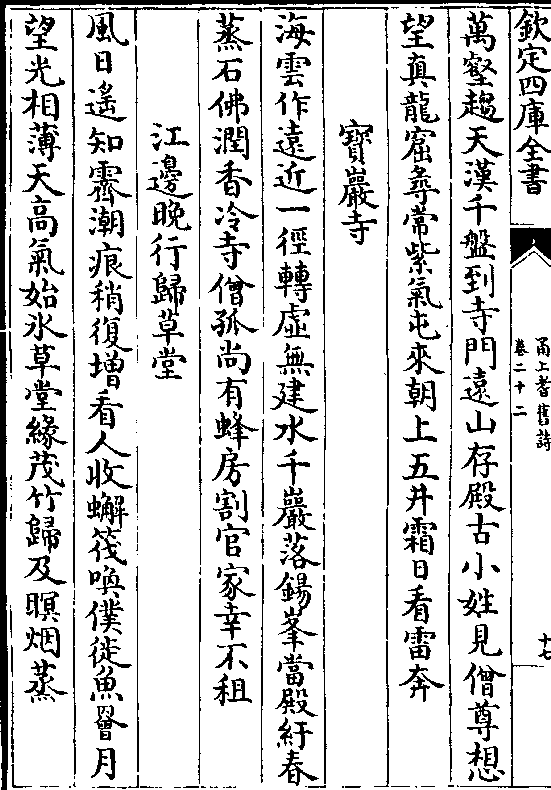 欽定四庫全書
甬上耆舊詩
卷二十二
十七
萬壑趨天漢千盤到寺門遠山存殿古小姓見僧尊想
望真龍窟尋常紫氣屯來朝上五井霜日看雷奔
寶巖寺
海雲作遠近一徑轉虛無建水千巖落錫峯當殿紆春
蒸石佛潤香冷寺僧孤尚有蜂房割官家幸不租
江邊晚行歸草堂
風日遙知霽潮痕稍復增看人收蠏筏喚僕徙魚罾月
望光相薄天高氣始氷草堂緣茂竹歸及暝烟蒸